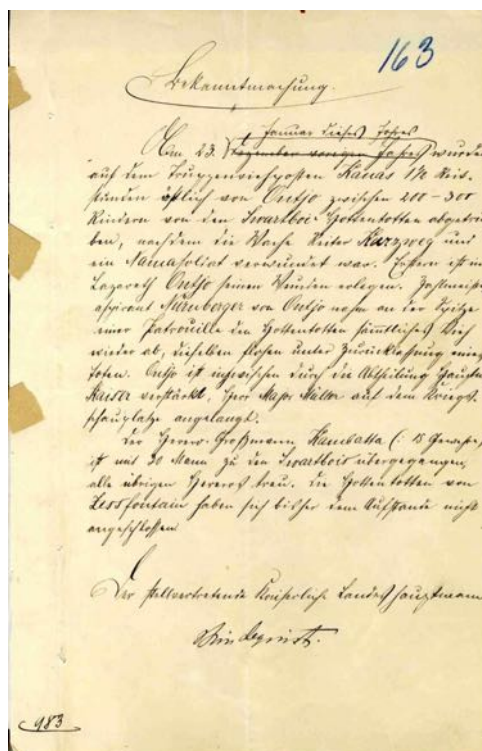 163
Bekanntmachung.
Januar dieses Jahres
Am 23. Dezember vorigen Jahres wurden
auf dem Truppenviehposten Kanas 1½ Reit-
stunden östlich von Outjo zwischen 200-300
Rindern von den Swartboi-Hottentotten abgetrie-
ben, nachdem die Wache Reiter Kurzweg und
ein Namasoldat verwundet war. Erstere ist im
Lazareth Outjo seinen Wunden erlegen. Zahlmeister
aspirant Nürnberger von Outjo nahm an der Spitze
einer Patrouille den Hottentotten sämmtliches Vieh
wieder ab, dieselben flohen unter Zurücklassung eines
Toten. Outjo ist inzwischen durch die Abtheilung Hauptm.
Kaiser verstärkt, Herr Major Müller auf dem Kriegs-
schauplatze angelangt.
Der Herero-Großmann Kambatta (: 15 Gewehre)
ist mit 30 Mann zu den Swartbois übergegangen,
alle übrigen Hereros treu. Die Hottentotten von
Zessfontain haben sich bisher dem Aufstande nicht
angeschlossen
Der stellvertretende Kaiserliche Landeshauptmann
Lindequist.
983